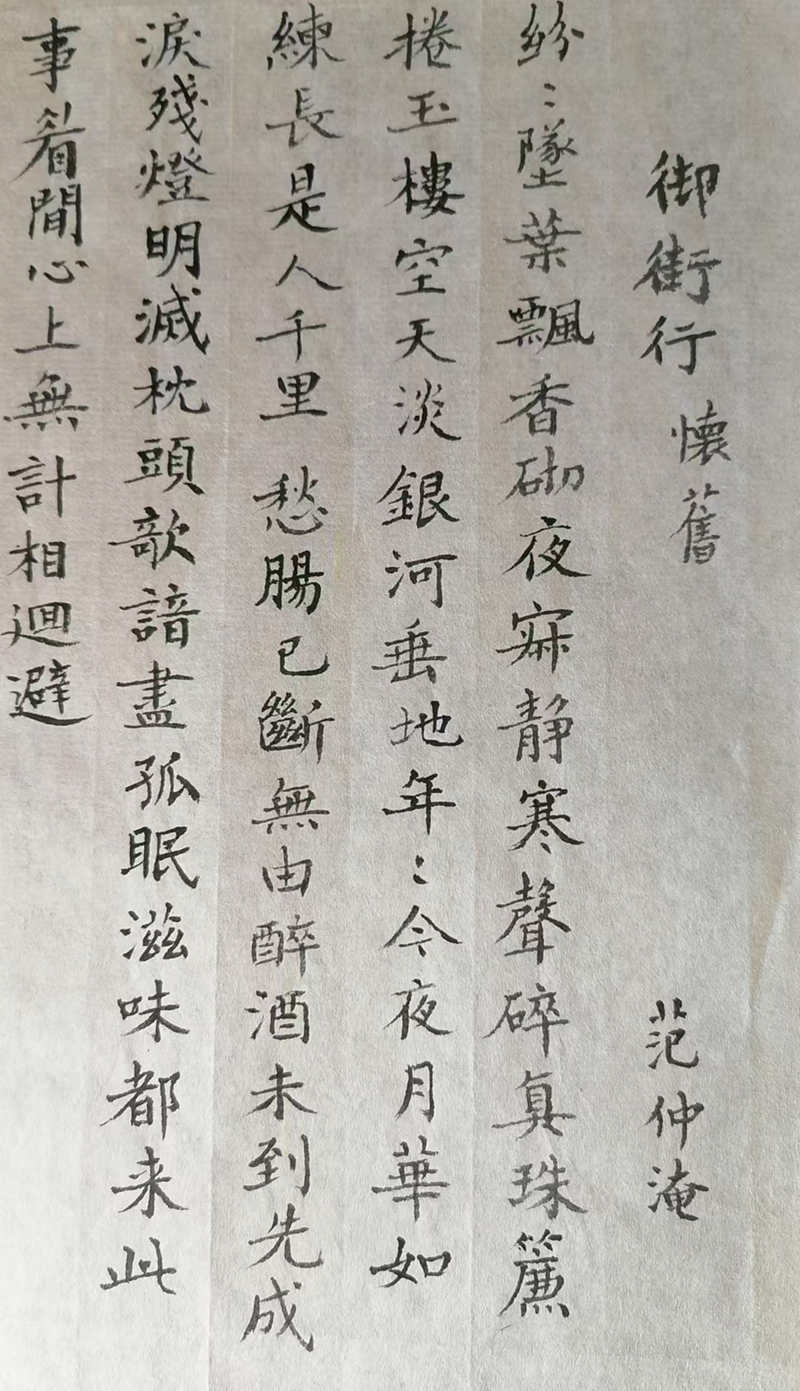 御街行 懷舊 范仲淹
紛：墜葉飄香砌夜寂静寒聲碎真珠簾
捲玉樓空天淡銀河垂地年：今夜月華如
練長是人千里 愁腸已斷無由醉酒未到先成
淚殘燈明滅枕頭欹諳盡孤眠滋味都来此
事眉間心上無計相迴避